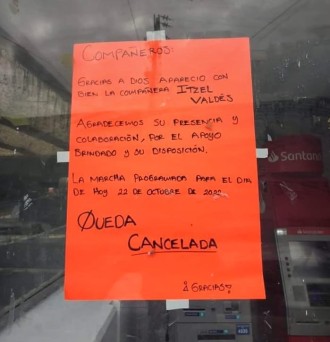 COMPAÑEROS:
GRACIAS A DIOS APARECIO CON
BIEN LA COMPAÑERA ITZEL
VALDÉS
AGRADECEMOS SU PRESENCIA Y
COLABORACIÓN, POR EL APOYO
BRINDADO Y SU DISPOSICIÓN.
LA MARCHA PROGRAMADA PARA EL DIA
DE HOY 22 DE OCTUBRE DE
QUEDA
CANCELADA
¡GRACIAS!
Santander